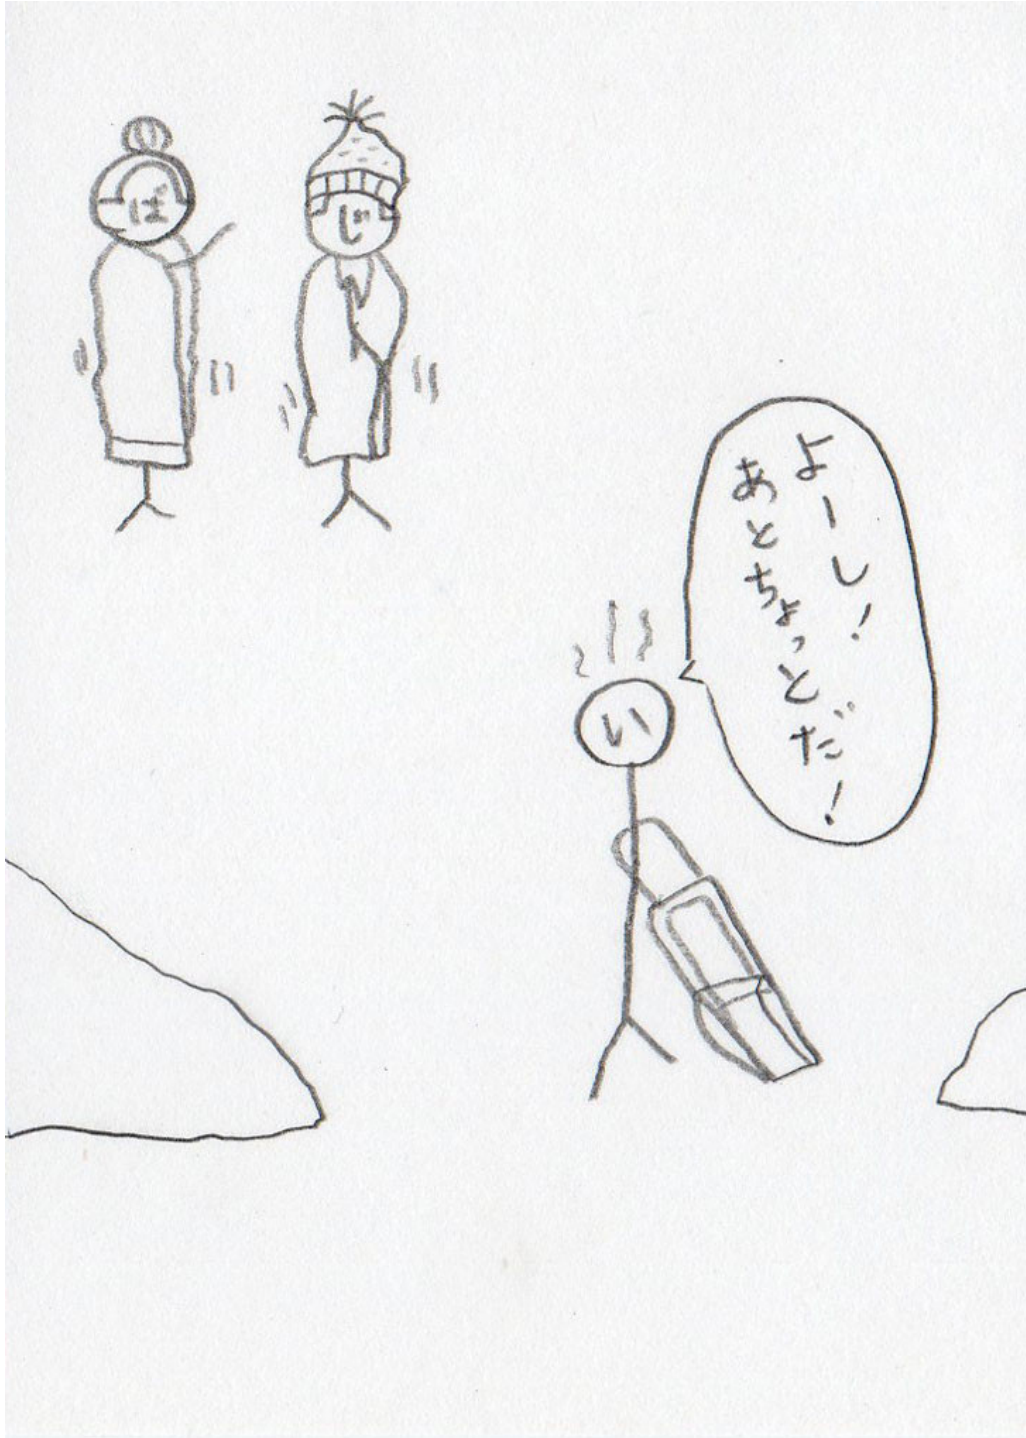 ば
じ
よーし!
あとちょっとだ!
い